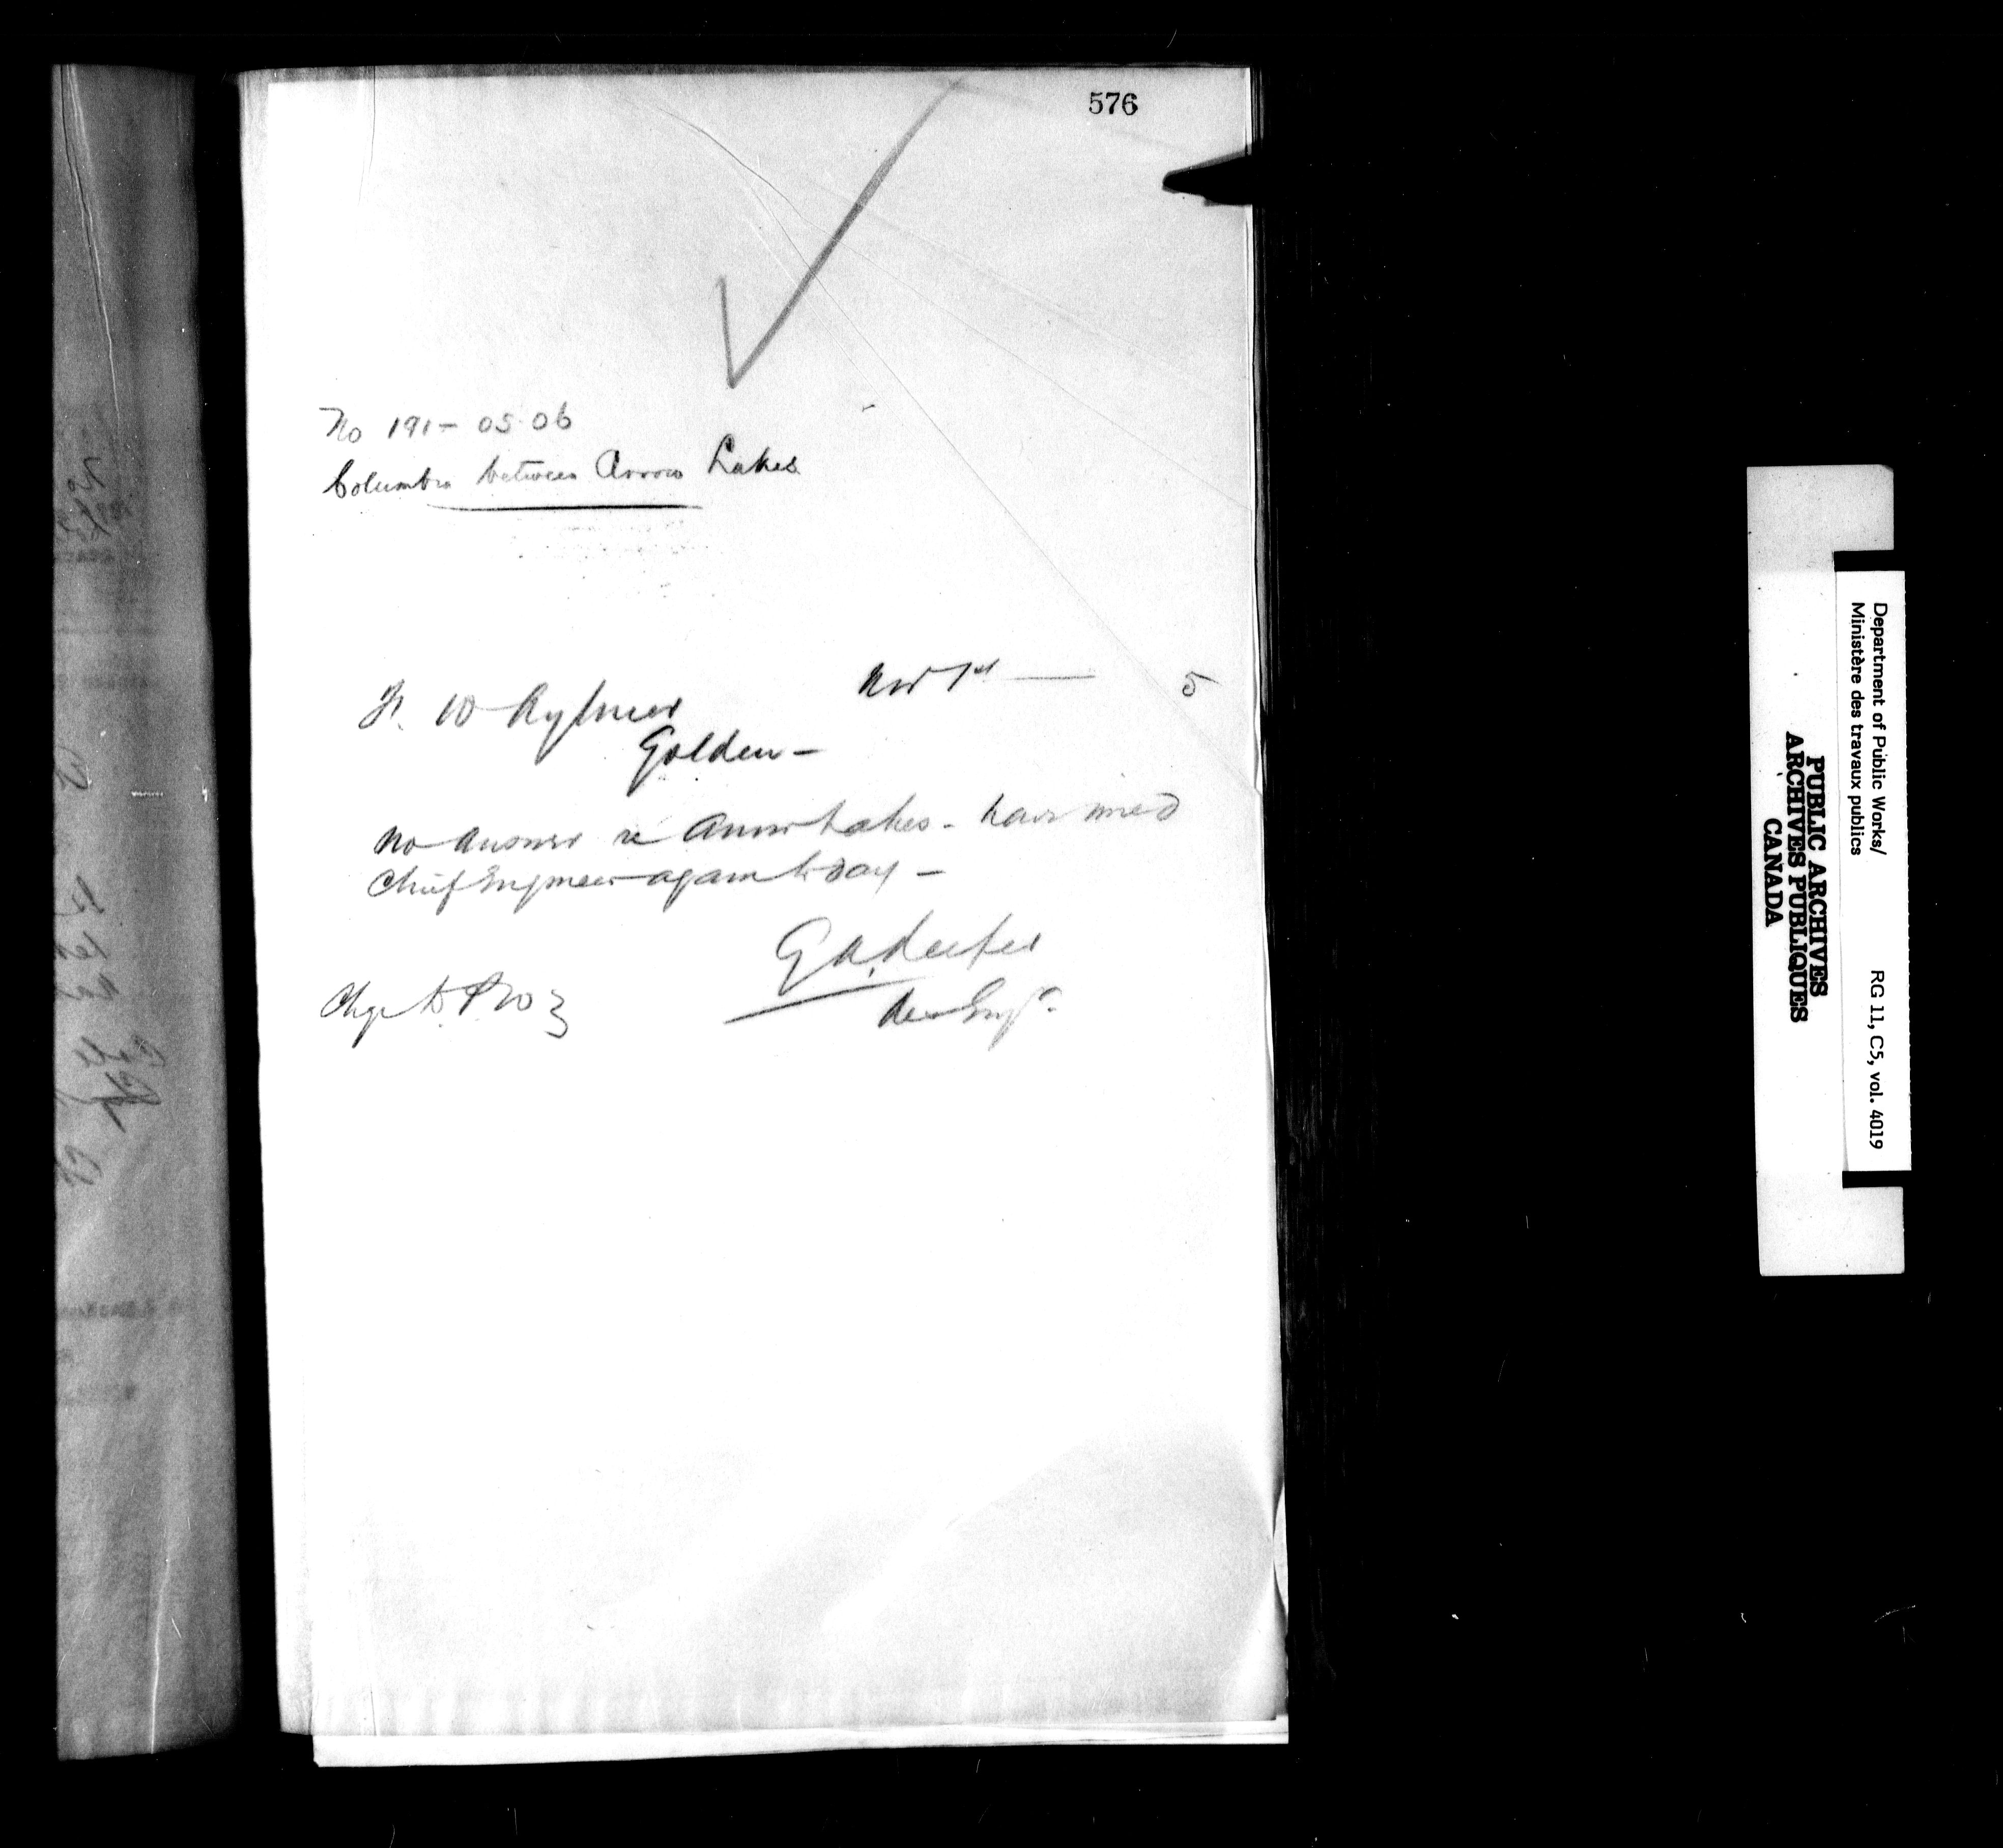 576
No 191 - 05.06
Columbia between Arrow Lakes
Nov 1st — 5
F. W. Aylmer
Golden -
No answer re Arrow Lakes - have wired
Chief Engineer again to day -
G A Keefer
Res Engr.
Chge to P W D
Department of Public Works/
Ministère des travaux publics
RG 11, C5, vol. 4019
PUBLIC ARCHIVES
ARCHIVES PUBLIQUES
CANADA